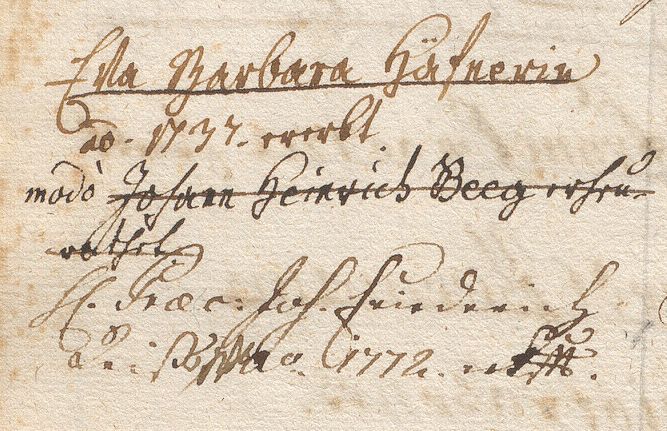 Eva Barbara Häfnerin
aō. 1737. ererbt.
modò Johann Heinrich Beeg erheu-
rathet.
Joh. Friederich
aō. 1772.